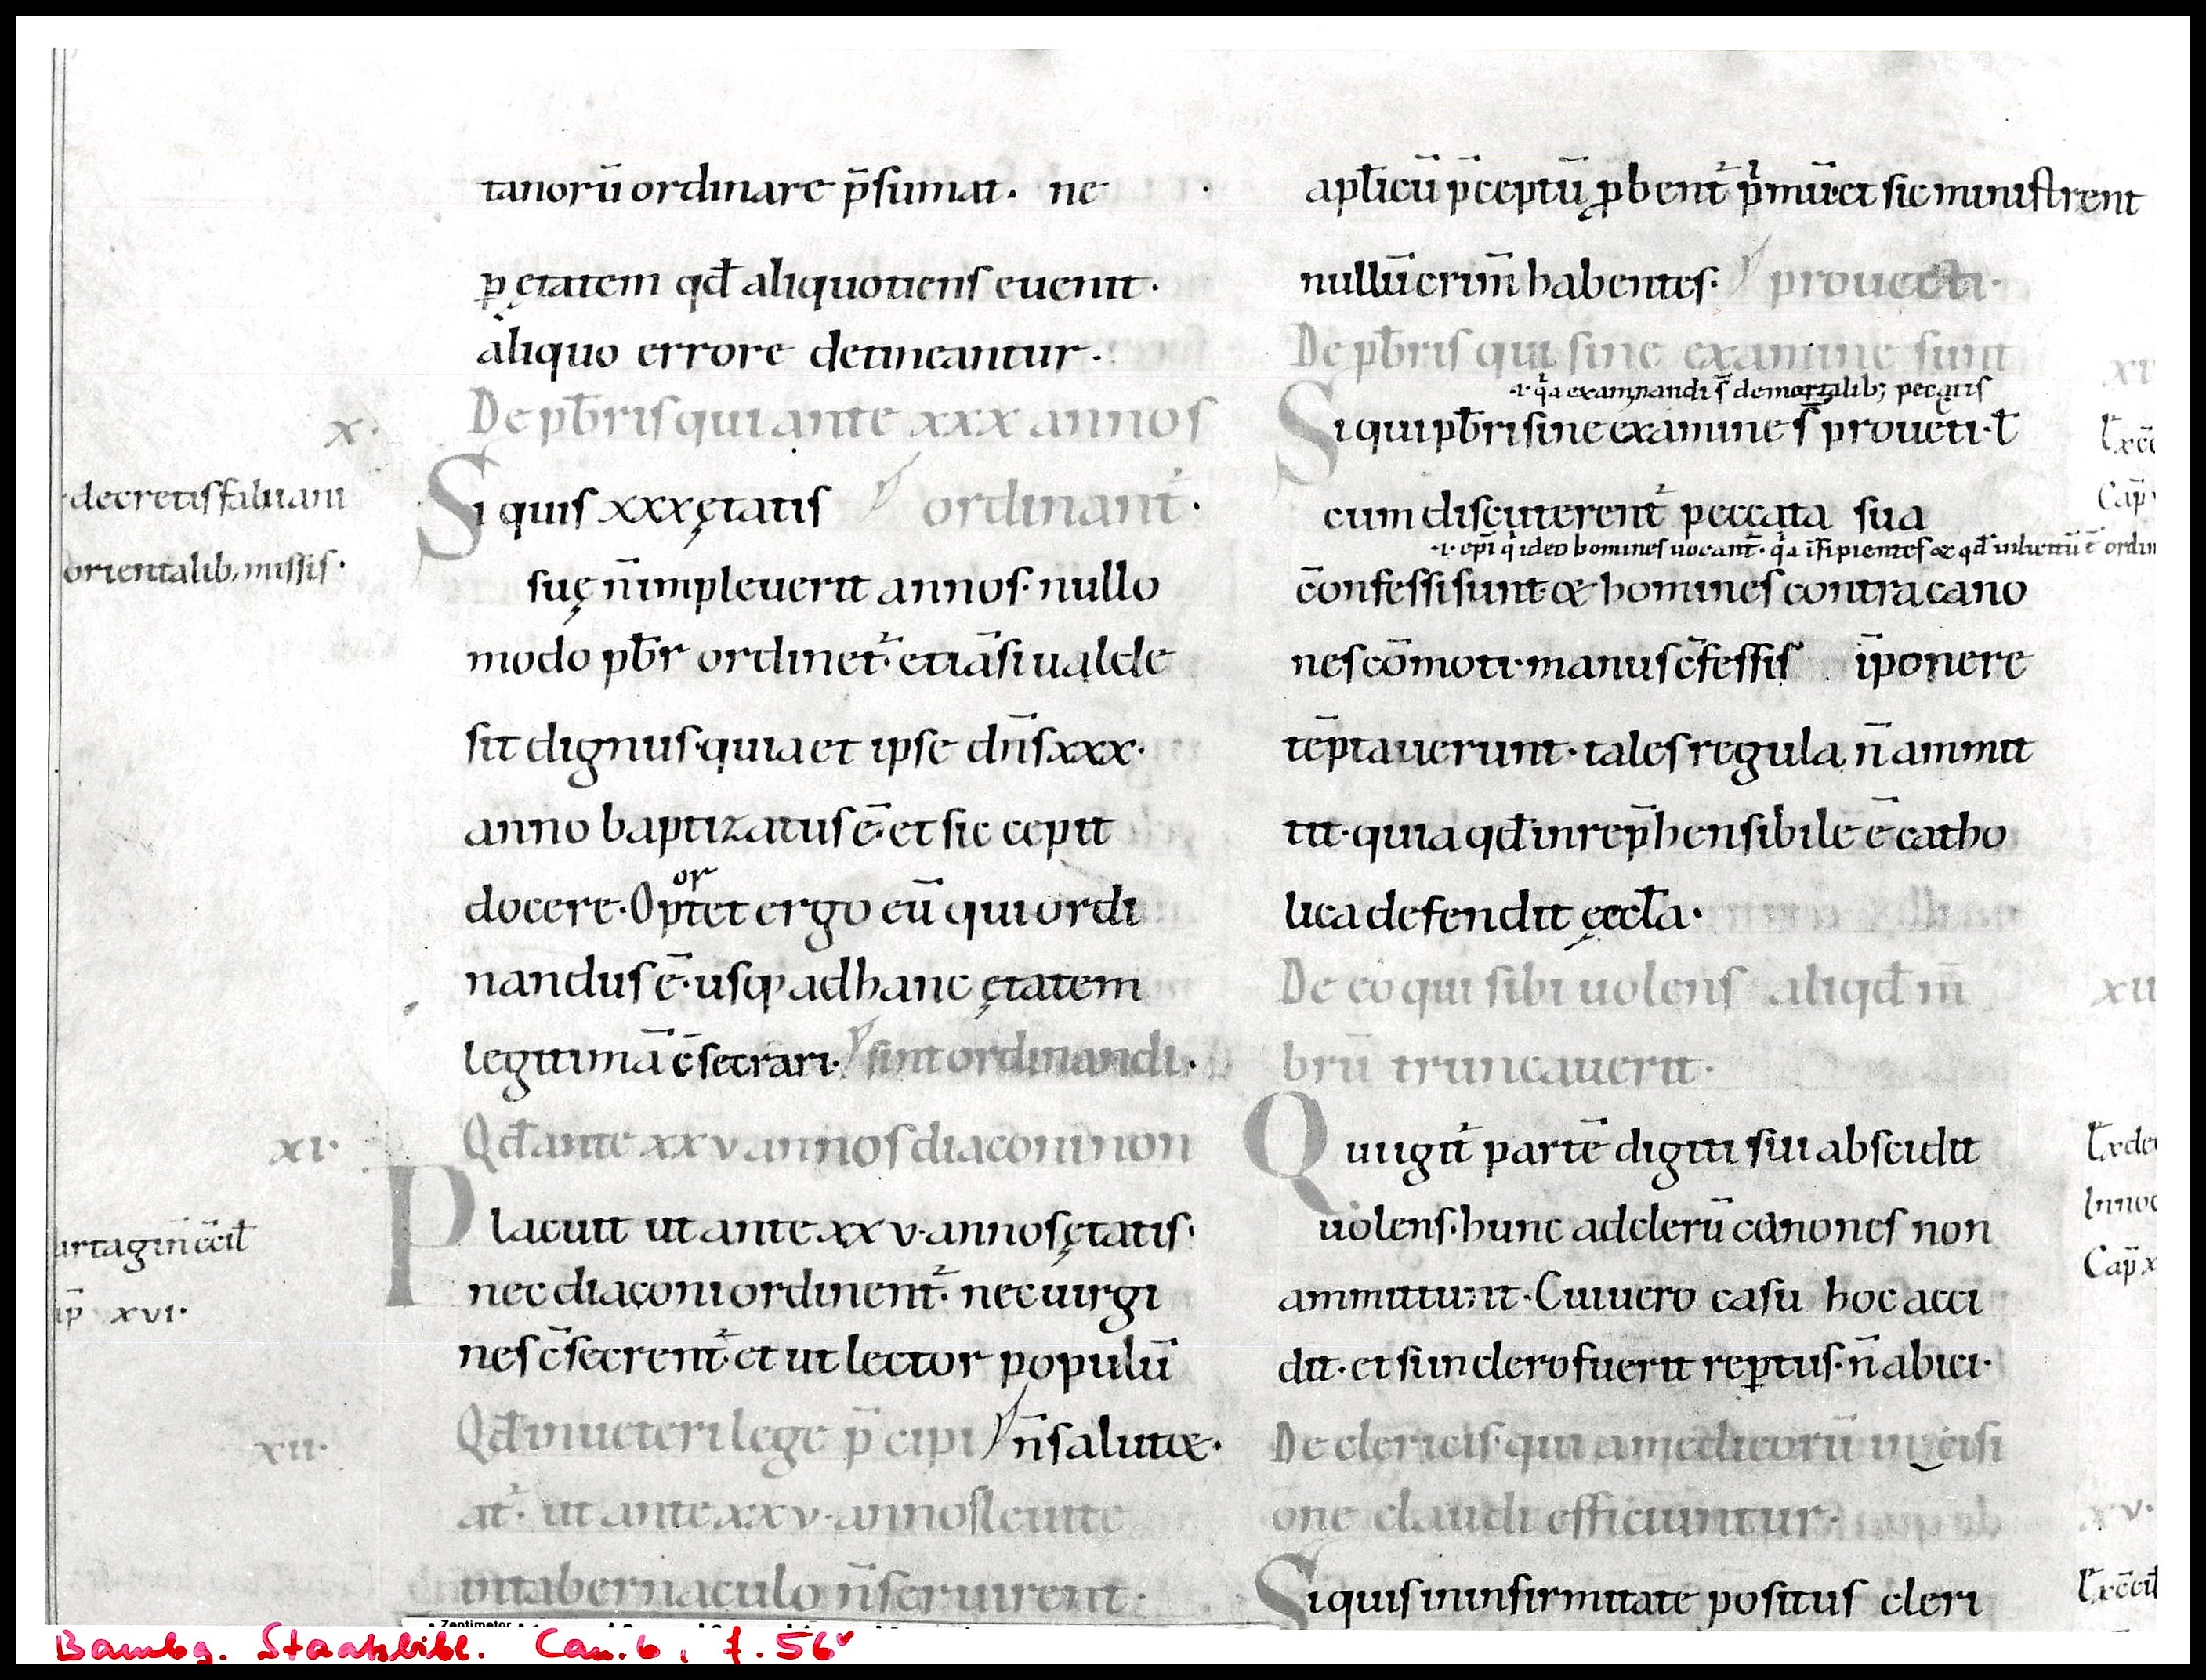 tanorū ordinare p̄sumat · ne
ꝑ ętatem qđ aliquotiens euenit ·
aliquo errore detineantur ·
x ·
De pb̄ris qui ante xxx annos
decretis fabiani
orientalib; missis ·
Si quis xxx ętatis ordinant᷑ ·
suę n̄ impleuerit annos · nullo
modo pb̄r ordinet᷑ · etiā si ualde
sit dignus · quia et ipse dn̄s xxx ·
anno baptizatus ē · et sic cepit
docere · Op^or tet ergo eū qui ordi
nandus ē · usq; ad hanc ętatem
legitimā c̄secrari · sint ordinandi ·
xi ·
Qđ ante xxv annos diaconi non
Placuit ut ante xxv · annos ętatis ·
artagiñ c̄cil̄
ap̄ xvi ·
nec diaconi ordinent᷑ · nec uirgi
nes c̄secrent᷑ · et ut lector populū
xii ·
Qđ in ueteri lege p̄cipi n̄ salutet ·
at᷑ · ut ante xxv · annos leuite
in tabernaculo n̄ seruirent ·
apl̄icū p̄ceptū ꝓbent᷑ pⁱmū · et sic ministrent
nullū crim̄ habentes · prouecti ·
De pb̄ris qui sine examine sunt
·i· qⁱa examinandi s̄ de mortalib; peccatis
Si qui pb̄ri sine examine s̄ prouecti · ł
cum discuterent᷑ peccata sua
·i· ep̄i qⁱ ideo homines uocant᷑ · qⁱa īsipientes & qđ inlicitū ē ordin
c̄onfessi sunt · & homines contra cano
nes cōmoti · manus c̄fessis īponere
tēptauerunt · tales regula n̄ ammit
tit · quia qđ inrep̄hensibile ē catho
lica defendit ęccl̄a ·
De eo qui sibi uolens aliqđ m̄
brū truncauerit ·
Qui igit᷑ partē digiti sui abscidit
Ex de
Inno
Cap̄ x
uolens · hunc ad clerū canones non
ammittunt · Cui uero casu hoc acci
dit · et si in clero fuerit reꝑtus · n̄ abici ·
De clericis · qui a medicorū incisi
one claudi efficiuntur ·
xv ·
Si quis in infirmitate positus cleri
Ex c̄cil̄
Zentimeter
Bambg. Staatsbibl. Can. 6, f. 56ᵛ